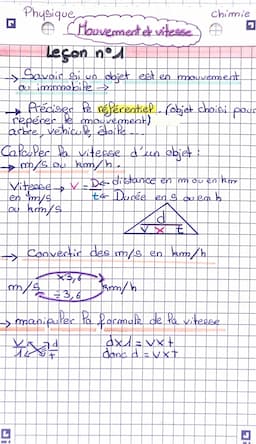 Physique
chimie
Mouvement et vitesse
Leçon n°1
→ Savoir si un objet est en mouvement
ou immobile →
→ Préciser le référentiel. (objet choisi pour
repérer le mouvement)
arbre, véhicule, étoile...
Calculer la vitesse d'un objet:
→ m/s ou km/h.
Vitesse → v = D ← distance en m ou en km
en m/s t ← Durée en s ou en h
ou km/h
d
v x t
→ Convertir des m/s en km/h
x3,6
m/s km/h
÷3,6
→ manipuler la formule de la vitesse
v d dx1 = vxt
1 t donc d = vxt